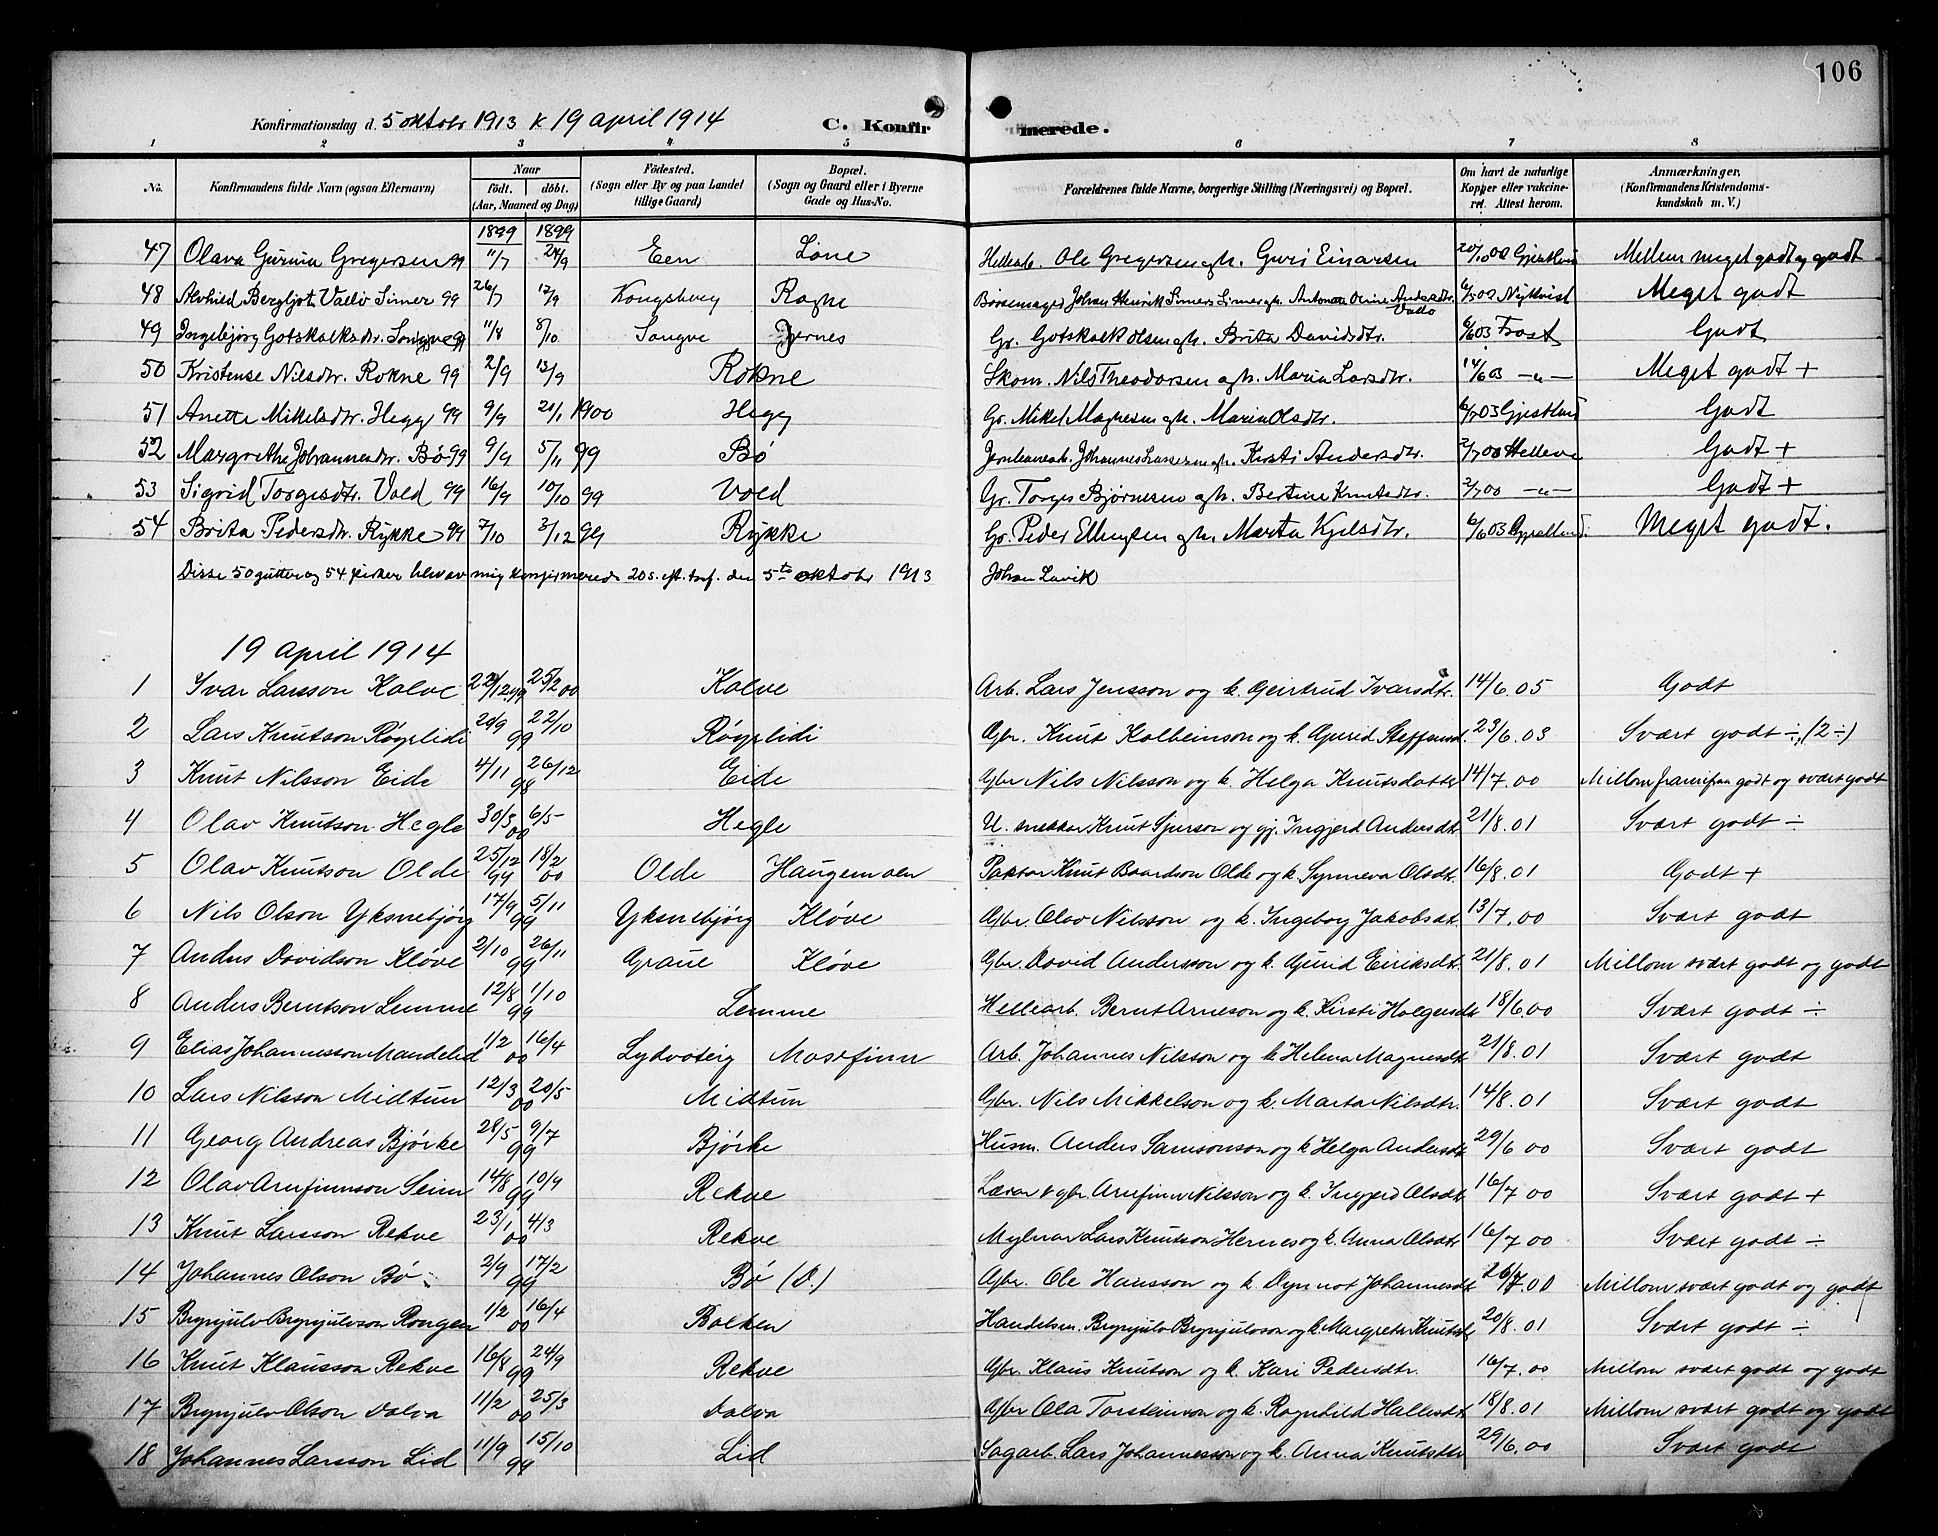 106
Konfirmationsdag d. 5 oktobr 1913 & 19 april 1914 C. Konfirmerede.
1 2 3 4 5 6 7 8
No. Konfirmandens fulde Navn (ogsaa Efternavn) Naar født. døbt. (Aar, Maaned og Dag) Fødested. (Sogn eller By og paa Landet tillige Gaard) Bopæl. (Sogn og Gaard eller i Byerne Gade og Hus-No. Forældrenes fulde Navne, borgerlige Stilling (Næringsvei) og Bopæl. Om havt de naturlige Kopper eller vakcineret. Attest herom. Anmærkninger, (Konfirmandens Kristendomskundskab m. V.)
1899 1899
47 Olava Gurina Gregersen 99 11/7 24/9 Een Lone Hellearb. Ole Gregersen og h. Guri Einarsen 20/10 00 Gjestland Mellem meget godt og godt
48 Alvhild Bergljot Vallø Simer 99 26/7 17/9 Kongsberg Rogne Børsemager Johan Henrik Simer og h. Antonette Oline Andersdtr. Vallø 6/5 02 Nykvist Meget godt
49 Ingebjørg Gotskalksdr. Songve 99 11/8 8/10 Songve Gjernes Gr. Gotskalk Olsen og h. Brita Davidsdtr. 6/6 03 Frost Godt
50 Kristense Nilsdtr. Rokne 99 2/9 13/9 Rokne Skom. Nils Theodorsen og h. Maria Larsdtr. 14/6 03 -"- Meget godt +
51 Anette Mikelsdtr. Hegg 99 9/9 21/1 1900 Hegg Gr. Mikel Magnesen og h. Maria Olsdtr. 6/7 03 Gjestland Godt
52 Margrethe Johannesdr. Bø 99 9/9 5/11 99 Bø Jernbanearb. Johannes Larsen og h. Kirsti Andersdtr. 2/7 00 Helleve Godt +
53 Sigrid Torgesdtr. Vold 99 16/9 10/10 99 Vold Gr. Torges Bjørnesen og h. Bertine Knutsdtr. 2/7 00 -"- Godt +
54 Brita Pedersdtr. Rykke 99 7/10 3/12 99 Rykke Gr. Peder Ellingsen og h. Marta Kjelsdtr. 6/6 03 Meget godt.
Disse 50 gutter og 54 piker blev av mig konfirmerede 20 s. eft. tref. den 5te oktobr 1913 Johan Lavik
19 april 1914
1 Ivar Larsson Kalve 22/12 99 25/2 00 Kalve Arb. Lars Jensson og k. Geirtrud Ivarsdtr. 14/6.05 Godt
2 Lars Knutson Røyrlidi 20/9 99 22/10 Røyrlidi Gbr. Knut Kolbeinson og k. Gurid Steffensd. 23/6.03 Svært godt ÷, (2 ÷)
3 Knut Nilsson Eide 4/11 98 26/12 Eide Gbr Nils Nilsson og k. Helga Knutsdotter 14/7.00 Millom framifraa godt og svært godt
4 Olav Knutson Hegle 30/3 00 6/5 Hegle U. snekkar Knut Sjurson og gj. Ingjerd Andersdt. 21/8.01 Svært godt ÷
5 Olav Knutson Olde 25/12 99 18/2 00 Olde Haugamoen Paktar Knut Baardson Olde og k. Synneva Olsdt. 16/8.01 Godt +
6 Nils Olson Yksnebjørg 17/9 99 5/11 Yksnebjørg Kløve Gbr. Olav Nilsson og k. Ingeborg Jakobsdt. 13/7.00 Svært godt
7 Anders Davidson Kløve 2/10 99 26/11 Graue Kløve Gbr. David Andersson og k. Gurid Eiriksdt. 21/8.01 Millom svært godt og godt
8 Anders Berntson Lemme 12/8 99 1/10 Lemme Hellearb. Bernt Arneson og k. Kirsti Holgersdt 18/6.00 Svært godt ÷
9 Elias Johannesson Mandelid 1/2 00 16/4 Lydvoteig Mosefinn Arb. Johannes Nilsson og k Helena Magnesdt 21/8.01 Svært godt
10 Lars Nilsson Midtun 12/3 00 20/5 Midtun Gbr. Nils Mikkelson og k. Marta Nilsdtr. 14/8.01 Svært godt
11 Georg Andreas Bjørke 28/5 99 9/7 Bjørke Husm. Anders Samsonson og k Helga Andersdt. 29/6 00 Svært godt
12 Olav Arnfinnson Seim 14/8 99 10/9 Rekve Lærar & gbr. Arnfinn Nilsson og k. Ingjerd Olsdt. 16/7 00 Svært godt +
13 Knut Larsson Rekve 23/1 00 4/3 Rekve Mylnar Lars Knutson Hernes og k. Anna Olsdtr 16/7 00 Svært godt ÷
14 Johannes Olson Bø 2/9 99 17/2 Bø (O.) Gbr. Ole Hansson og k. Dynnot Johannesdt 26/7.00 Millom svært godt og godt
15 Brynjulv Brynjulvson Rongen 1/2 00 16/4 Bolken Handelsm. Brynjulv Brynjulvson og k. Margreta Knutsdt 20/8.01 Svært godt ÷
16 Knut Klausson Rekve 16/8 99 24/9 Rekve Gbr. Klaus Knutson og k. Kari Pedersdtr. 16/7.00 Millom svært godt og godt
17 Brynjulv Olson Dalva 11/2 00 25/3 Dalva Gbr Ola Torsteinson og k. Ragnhild Hallesdt. 18/8.01 Millom svært godt og godt
18 Johannes Larsson Lid 11/9 99 15/10 Lid Sagarb. Lars Johannesson og k. Anna Knutsdtr 29/6.00 Svært godt